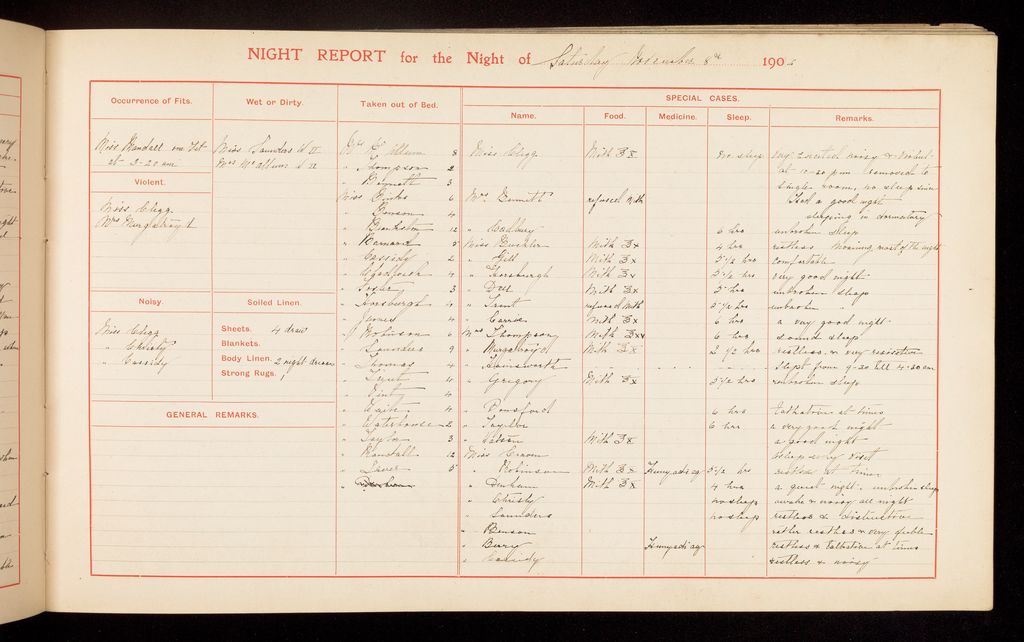 NIGHT REPORT for the Night of Saturday November 8th 190
Occurrence of Fits.
Miss Randall one Fit
at 3-20 am
Violent.
Miss Clegg
Mrs Murgatroyd
Noisy.
Miss Clegg
" Christy
" Cassidy
Wet or Dirty.
Miss Saunders W II
Mrs McCallum W II
Soiled Linen.
Sheets. 4 draw
Blankets.
Body Linen. 2 night dresses
Strong Rugs. 1
GENERAL REMARKS.
Taken out of Bed.
Mrs Mc Callum 8
" Thompson 2
" 3
Miss Binks 6
" Benson 4
" Bankston 12
" Bernard 5
" Cassidy 2
" 4
" Foster 3
" Horsburgh 4
" Jones 4
" Robinson 6
" Saunders 9
" Thomas 4
" Trent 10
" 4
" Waite 4
" Waterhouse 2
" Taylor 3
" Randall 12
" 5
SPECIAL CASES.
Name. Food. Medicine. Sleep. Remarks.
Miss Clegg Milk ℥x no sleep very excited noisy & violent
at 12-20 pm removed to
single room, no sleep since
Mrs refused milk Had a good night
sleeping in dormitory
" Cadbury 6 hrs unbroken sleep
Miss Milk ℥x 4 hrs restless moaning most of the night
" Gill Milk ℥x 5 1/2 hrs comfortable
" Horsburgh Milk ℥x 5 1/2 hrs very good night
" Milk ℥x 5 hrs unbroken sleep
" Trent refused milk 5 1/2 hrs unbroken "
" Carrie Milk ℥x 6 hrs a very good night
Mrs Thompson Milk ℥xx 6 hrs sound sleep
" Murgatroyd Milk ℥x 2 1/2 hrs restless & very resistive
" Hainsworth slept from 9-30 till 4-30 am
" Gregory Milk ℥x 5 1/2 hrs unbroken sleep
" Ponsford 6 hrs talkative at times
" Taylor 6 hrs a very good night
" Milk ℥x a good night
Miss asleep every visit
" Robinson Milk ℥x Hunyadi aq 5 1/2 hrs restless at times
" Durham Milk ℥x 4 hrs a quiet night unbroken sleep
" Christy no sleep awake & noisy all night
" Saunders no sleep restless & destructive
" Benson rather restless & very feeble
" Berry Hunyadi aq restless & talkative at times
" Cassidy restless & noisy